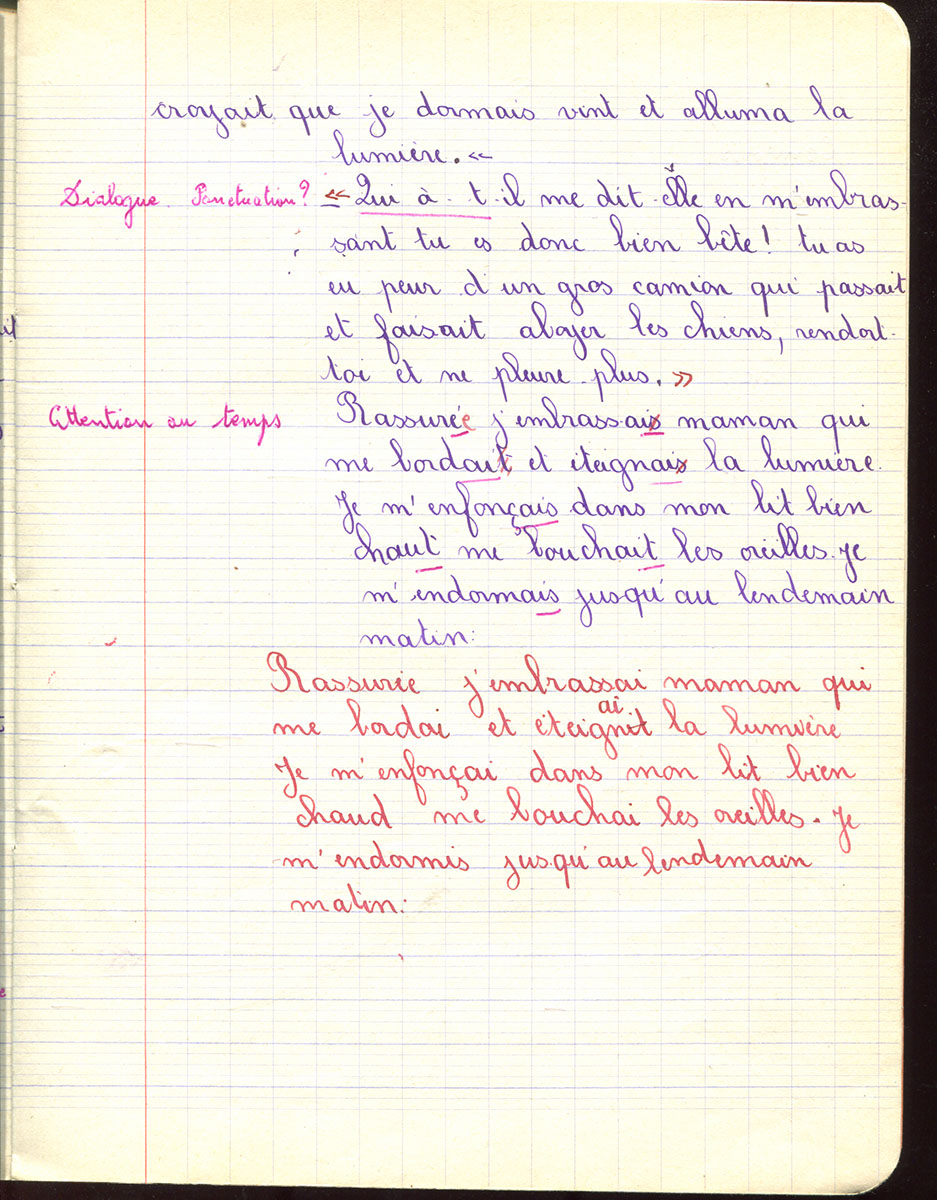 croyait que je dormais vint et alluma la
lumière. «
Dialogue. Ponctuation? « Qui à - t - il me dit - elle en m'embras-
sant tu es donc bien bête! tu as
eu peur d'un gros camion qui passait
et faisait aboyer les chiens, rendort-
toi et ne pleure plus. »
Attention au temps Rassurée j'embrassais maman qui
me bordait et éteignais la lumière.
Je m'enfonçais dans mon lit bien
chaut me bouchait les oreilles. Je
m'endormais jusqu'au lendemain
matin:
Rassurée j'embrassai maman qui
ai
me bordai et éteignit la lumière
Je m'enfonçai dans mon lit bien
chaud me bouchai les oreilles. Je
m'endormis jusqu'au lendemain
matin: